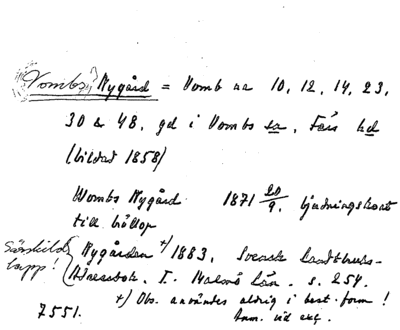 (Vombs) Nygård = Vomb na 10, 12, 14, 23,
30 & 48, gd i Vombs sn, Färs hd
(bildad 1858)
Wombs Nygård 1871 20/9. ljudningsboat
till bröllop
Särskild lapp! Nygården +) 1883, Svensk Landthus-
Adressbok. I. Malmö Län. s. 254.
+) Obs. användes aldrig i best. form!
7551.